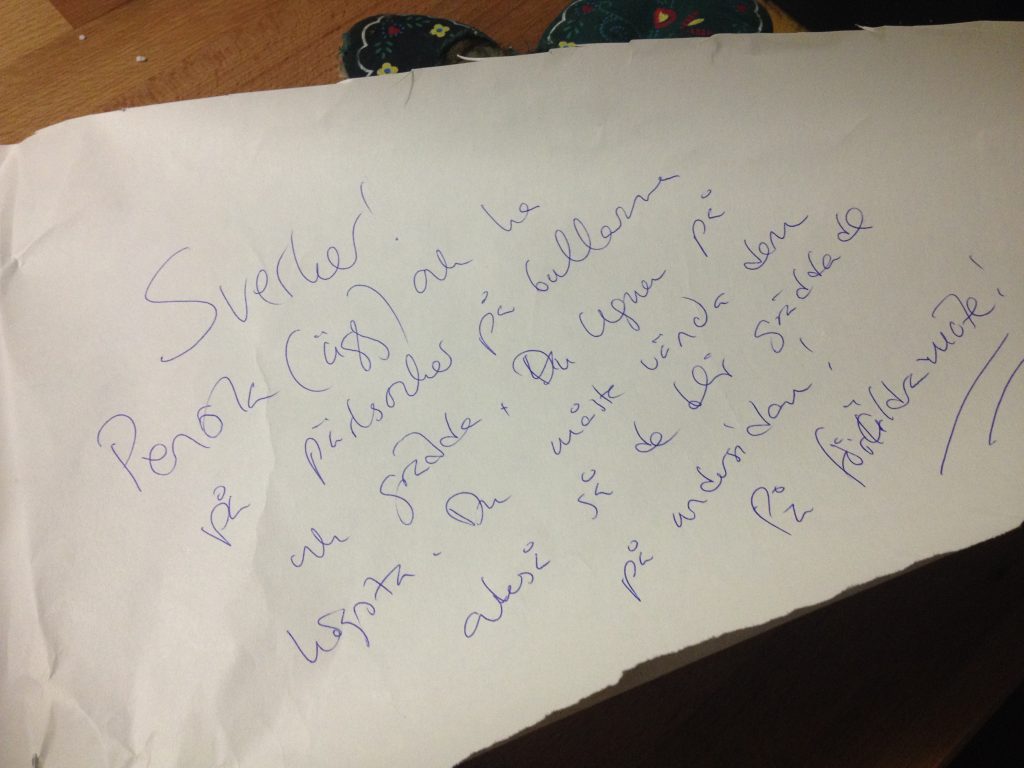 Sverker!
Pensla (ägg) och ha
på pärlsocker på bullarna
och grädda. Du Ugnen på
högsta. Du måste vända dem
också så de blir gräddade
på undersidan!
På föräldramöte!